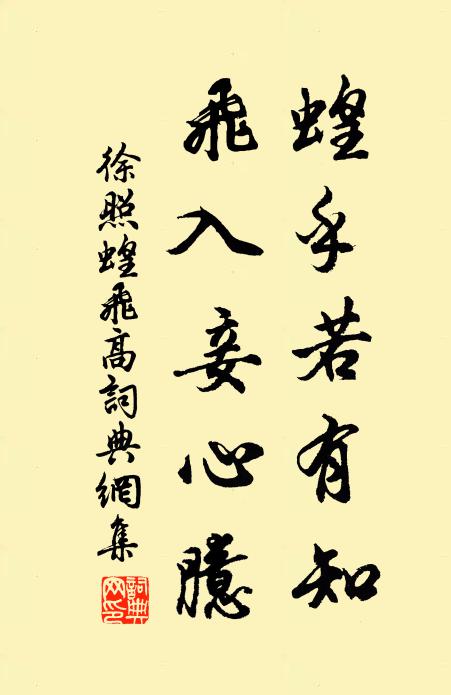 蝗乎若有知
飛入妾心臆
徐照蝗飛高詞典網集
詞典網印